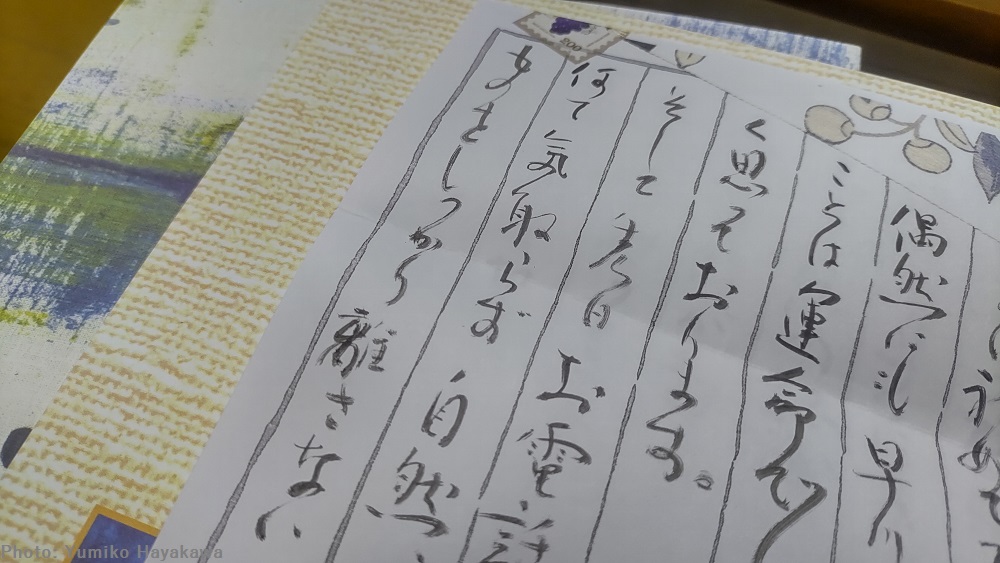 偶然にも 早川
ことは運命で
く思っております。
そして先日 お電話
何て気取らず 自然
をしっかり離さない
200
Photo: Yumiko Hayakawa